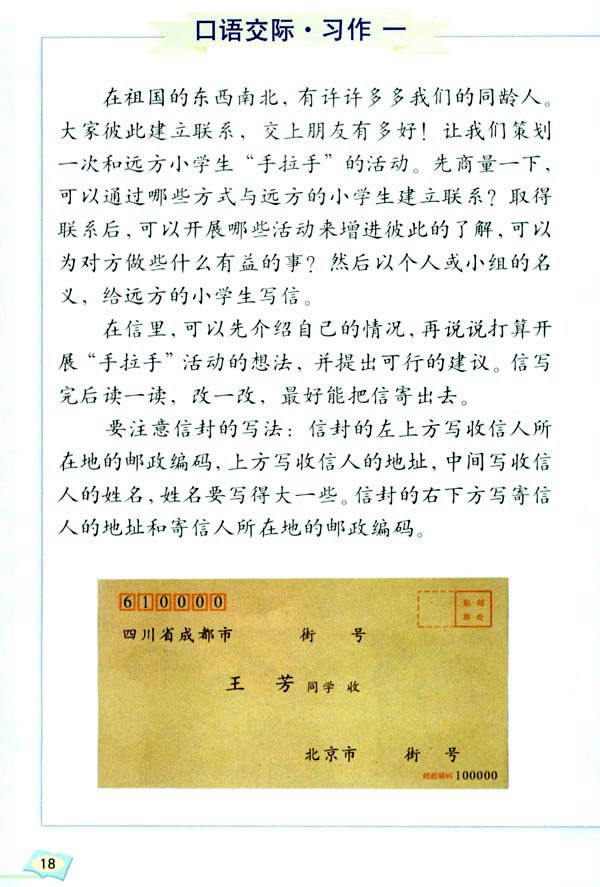 口语交际·习作 一
在祖国的东西南北，有许许多多我们的同龄人。
大家彼此建立联系，交上朋友有多好！让我们策划
一次和远方小学生“手拉手”的活动。先商量一下，
可以通过哪些方式与远方的小学生建立联系？取得
联系后，可以开展哪些活动来增进彼此的了解，可以
为对方做些什么有益的事？然后以个人或小组的名
义，给远方的小学生写信。
在信里，可以先介绍自己的情况，再说说打算开
展“手拉手”活动的想法，并提出可行的建议。信写
完后读一读，改一改，最好能把信寄出去。
要注意信封的写法：信封的左上方写收信人所
在地的邮政编码，上方写收信人的地址，中间写收信
人的姓名，姓名要写得大一些。信封的右下方写寄信
人的地址和寄信人所在地的邮政编码。
610000
贴邮
票处
四川省成都市 街 号
王 芳 同学 收
北京市 街 号
邮政编码 100000
18